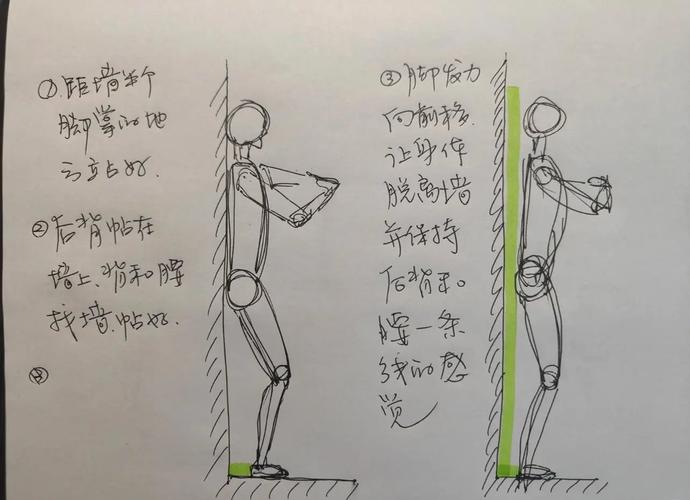 ① 距墙半个
脚掌的地
方立占好.
② 后背帖在
墙上、背和腰
找墙、帖好.
③
③ 脚发力
向前移.
让身体
脱离墙
并保持
后背和
腰一条
线的感
觉